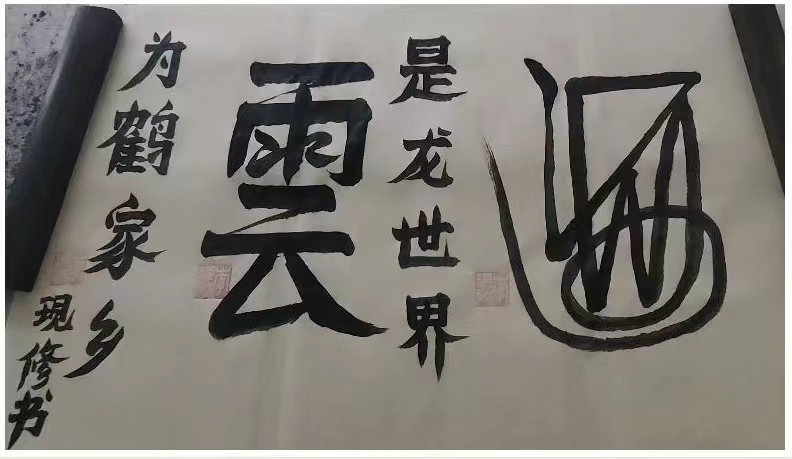 是龙世界
雲
为鹤家乡
现修书